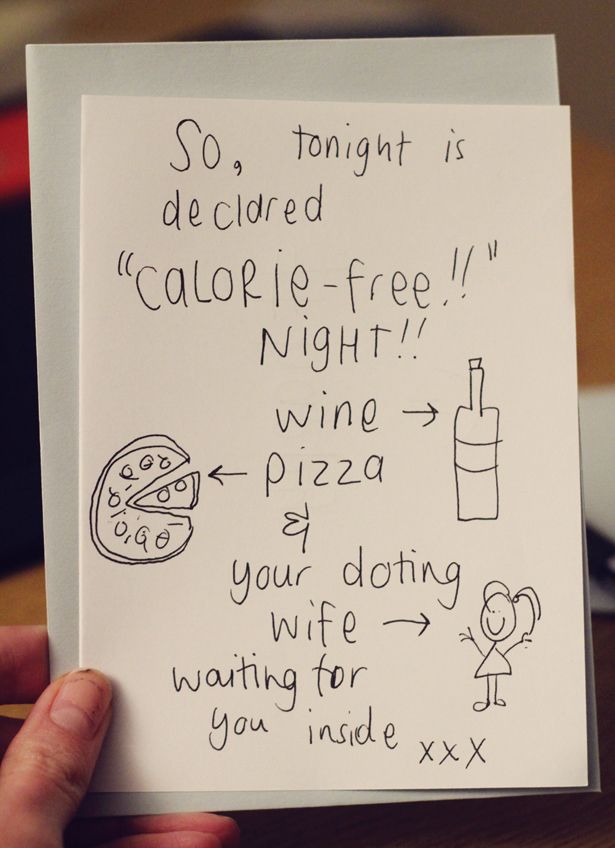 So, tonight is
declared
"CALORie-free!!"
NiGHT!!
wine →
← pizza
&
your doting
wife →
waiting for
you inside xxx